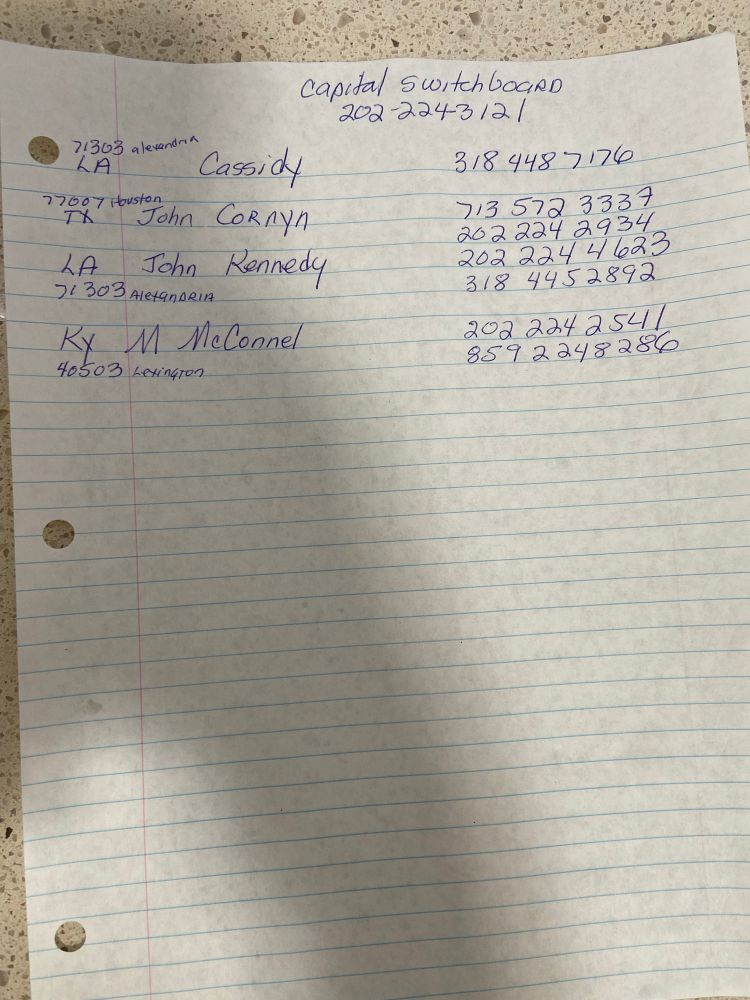 Capital Switchboard
202-224-3121
71303 alexandria
LA Cassidy 318 448 7176
77007 Houston
TX John Cornyn 713 572 3337
202 224 2934
LA John Kennedy 202 224 4623
71303 Alexandria 318 445 2892
Ky M McConnel 202 224 2541
859 224 8286
40503 Lexington